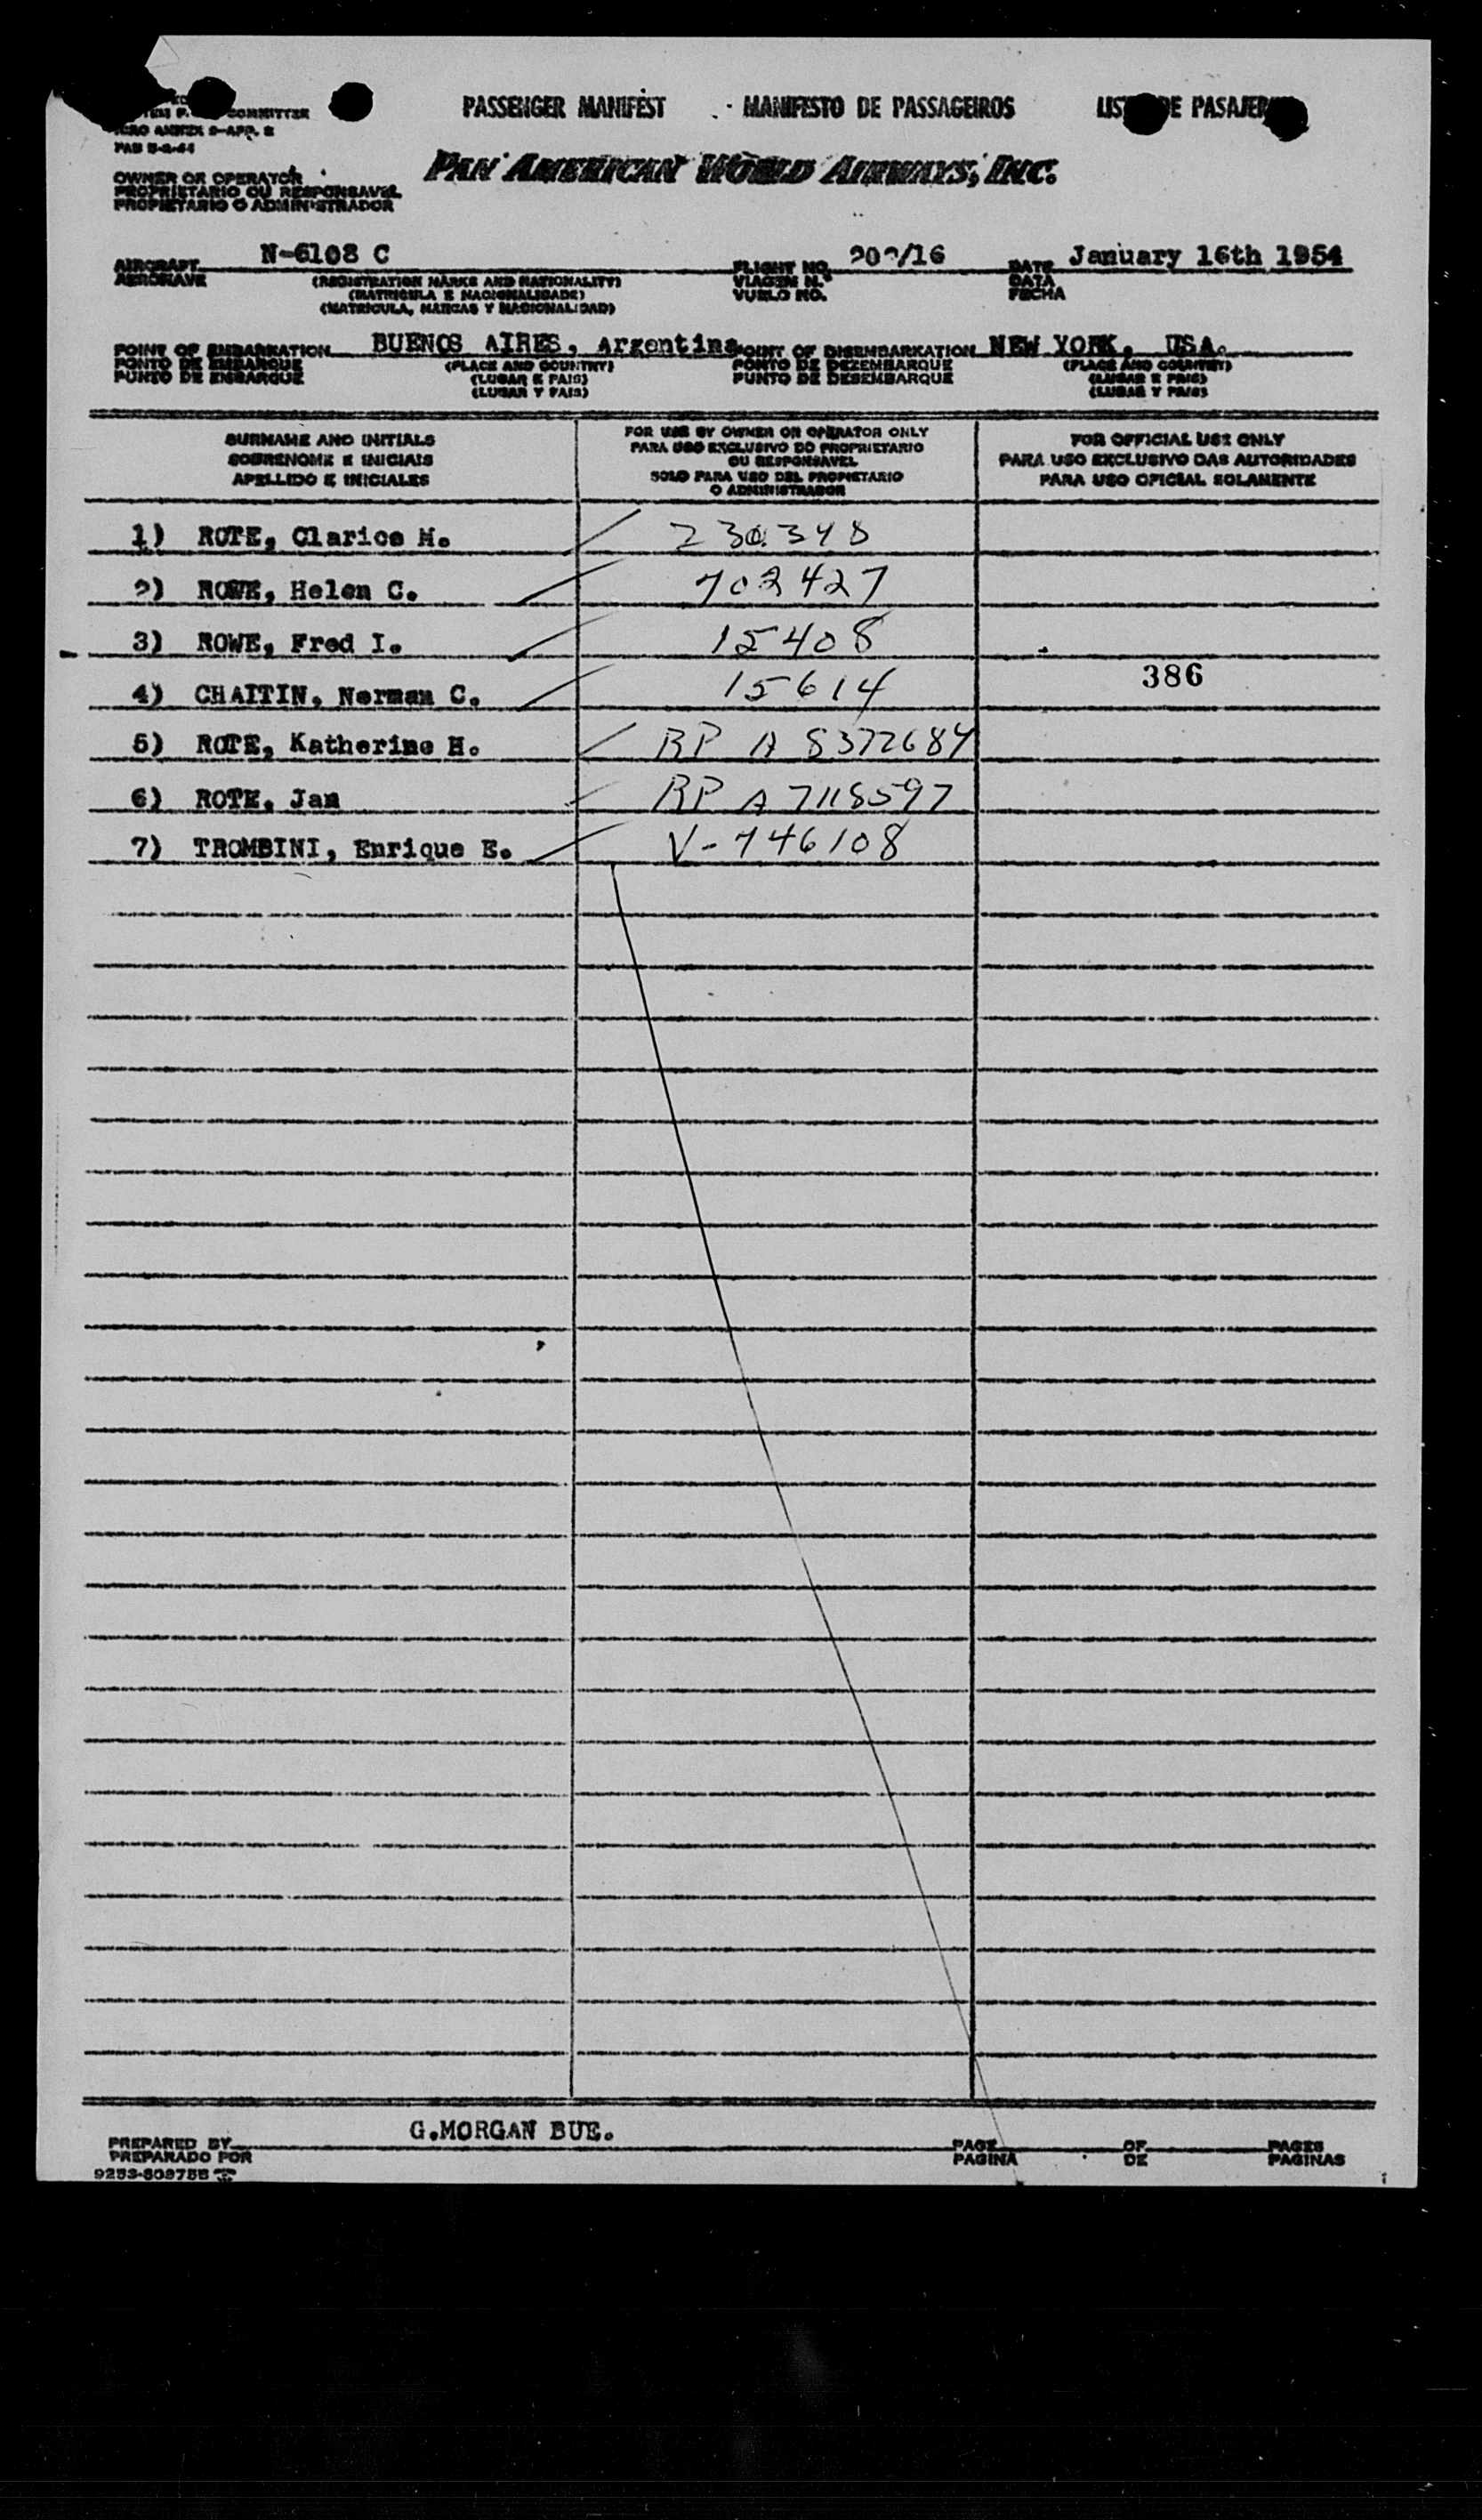 PASSENGER MANIFEST - MANIFESTO DE PASSAGEIROS DE
COMMITTEE
ICAO ANNEX 9-APP. 2
PAN AMERICAN WORLD AIRWAYS, INC.
OWNER OR OPERATOR
PROPRIETARIO OU RESPONSAVEL
PROPIETARIO O ADMINISTRADOR
AIRCRAFT N-6108 C FLIGHT NO. DATE January 16th 1954
AERONAVE (REGISTRATION MARKS AND NATIONALITY) VIAGEM N.º DATA
(MATRICULA E NACIONALIDADE) VUELO NO. FECHA
(MATRICULA, MARCAS Y NACIONALIDAD)
POINT OF EMBARKATION BUENOS AIRES, Argentina POINT OF DISEMBARKATION NEW YORK, USA.
PONTO DE EMBARQUE (PLACE AND COUNTRY) PONTO DE DEZEMBARQUE (PLACE AND COUNTRY)
PUNTO DE EMBARQUE (LUGAR E PAIS) PUNTO DE DESEMBARQUE (LUGAR E PAIS)
(LUGAR Y PAIS) (LUGAR Y PAIS)
SURNAME AND INITIALS FOR USE BY OWNER OR OPERATOR ONLY FOR OFFICIAL USE ONLY
SOBRENOME E INICIAIS PARA USO EXCLUSIVO DO PROPRIETARIO PARA USO EXCLUSIVO DAS AUTORIDADES
OU RESPONSAVEL
APELLIDO E INICIALES SOLO PARA USO DEL PROPIETARIO PARA USO OFICIAL SOLAMENTE
O ADMINISTRADOR
1) ROTE, Clarice M. 230348
2) ROWE, Helen C. 702427
3) ROWE, Fred I. 15408
4) CHAITIN, Norman C. 15614 386
5) ROTE, Katherine H. RP A 8372684
6) ROTE, Jan RP A 7118597
7) TROMBINI, Enrique E. V-746108
G.MORGAN BUE.
PREPARED BY PAGE OF PAGES
PREPARADO POR PAGINA DE PAGINAS